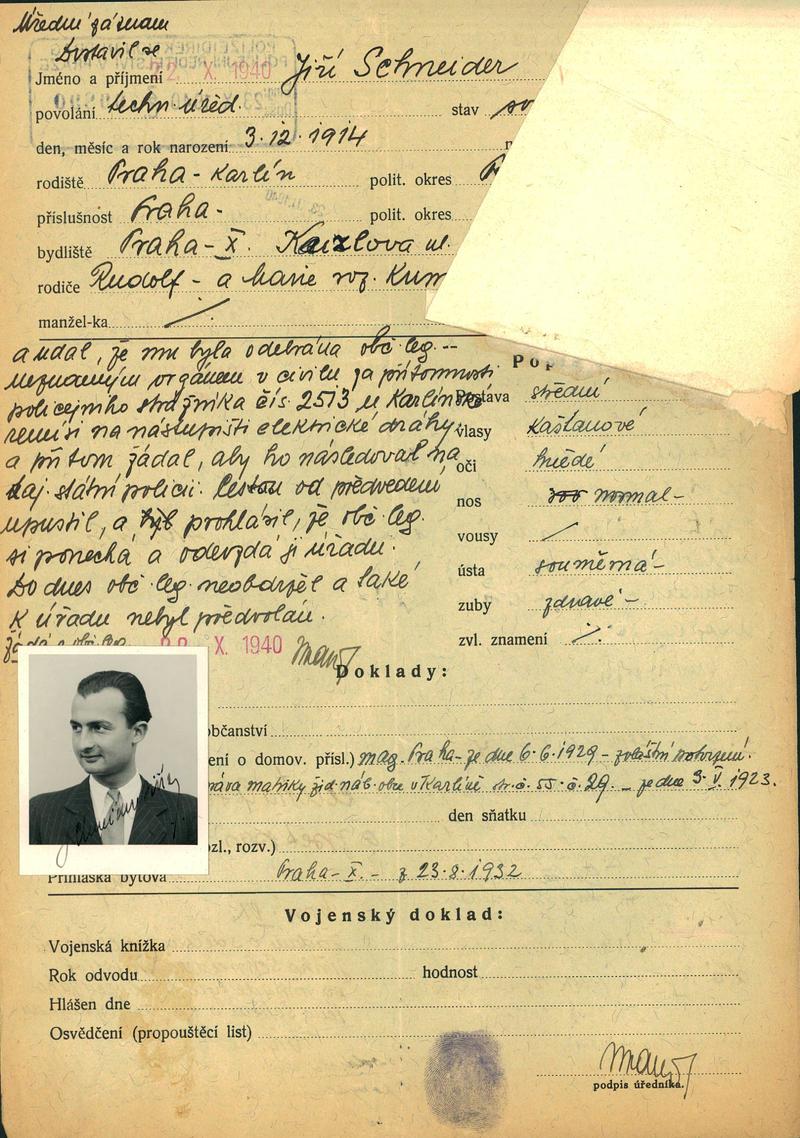 Úřední záznam
Dostavil se
22. X. 1940
Jméno a příjmení Jiří Schneider
povolání techn. úřed. stav
den, měsíc a rok narození 3. 12. 1914
rodiště Praha - Karlín polit. okres
příslušnost Praha - polit. okres
bydliště Praha - X. ul.
rodiče Rudolf - a Marie roz.
manžel-ka ./.
a udal, že mu byla odebrána obč. leg. --
neznámým orgánem v civilu za přítomnosti
policejního strážníka čís. 2513 u Karlínské
remisi na nástupišti elektrické dráhy,
a při tom žádal, aby ho následoval na
taj. státní policii. Cestou od předvedení
upustil, a prohlásil, že obč. leg.
si ponechá a odevzdá ji úřadu.
Do dnes obč. leg. neobdržel a také
k úřadu nebyl předvolán.
22. X. 1940
Pop
Postava střední
vlasy kaštanové
oči hnědé
nos normal -
vousy /
ústa souměrná -
zuby zdravé -
zvl. znamení ./.
Doklady:
občanství
ení o domov. přísl.) mag. Praha - ze dne 6. 6. 1929 - zvláštní potvrzení.
matriky žid. náb. obce v Karlíně str. č. 55 č. 29. - ze dne 3. V. 1923.
den sňatku
ozl., rozv.)
Přihláška bytová Praha - X. - z 23. 8. 1932
Vojenský doklad:
Vojenská knížka
Rok odvodu hodnost
Hlášen dne
Osvědčení (propouštěcí list)
podpis úředníka.